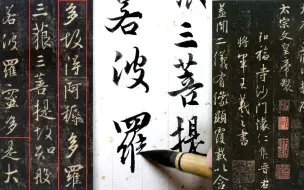 太宗文皇帝製
弘福寺沙門懷仁集晉右
將軍王羲之書
蓋聞二儀有像顯覆載以含
三菩提
若波羅
多故得阿耨多羅
三藐三菩提故知般
若波羅蜜多是大